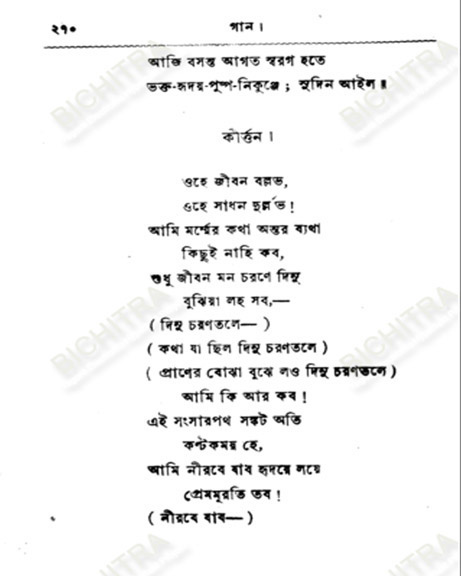 ২৭০
গান।
আজি বসন্ত আগত স্বরগ হতে
ভক্ত-হৃদয়-পুষ্প-নিকুঞ্জে ; সুদিন আইল॥
কীর্ত্তন।
ওহে জীবন বল্লভ,
ওহে সাধন দুর্ল্লভ!
আমি মর্ম্মের কথা অন্তর ব্যথা
কিছুই নাহি কব,
শুধু জীবন মন চরণে দিনু
বুঝিয়া লহ সব,—
( দিনু চরণতলে— )
( কথা যা ছিল দিনু চরণতলে )
( প্রাণের বোঝা বুঝে লও দিনু চরণতলে )
আমি কি আর কব!
এই সংসারপথ সঙ্কট অতি
কণ্টকময় হে,
আমি নীরবে যাব হৃদয়ে লয়ে
প্রেমমূরতি তব!
( নীরবে যাব— )
BICHITRA
BICHITRA
BICHITRA
BICHITRA
BICHITRA
BICHITRA